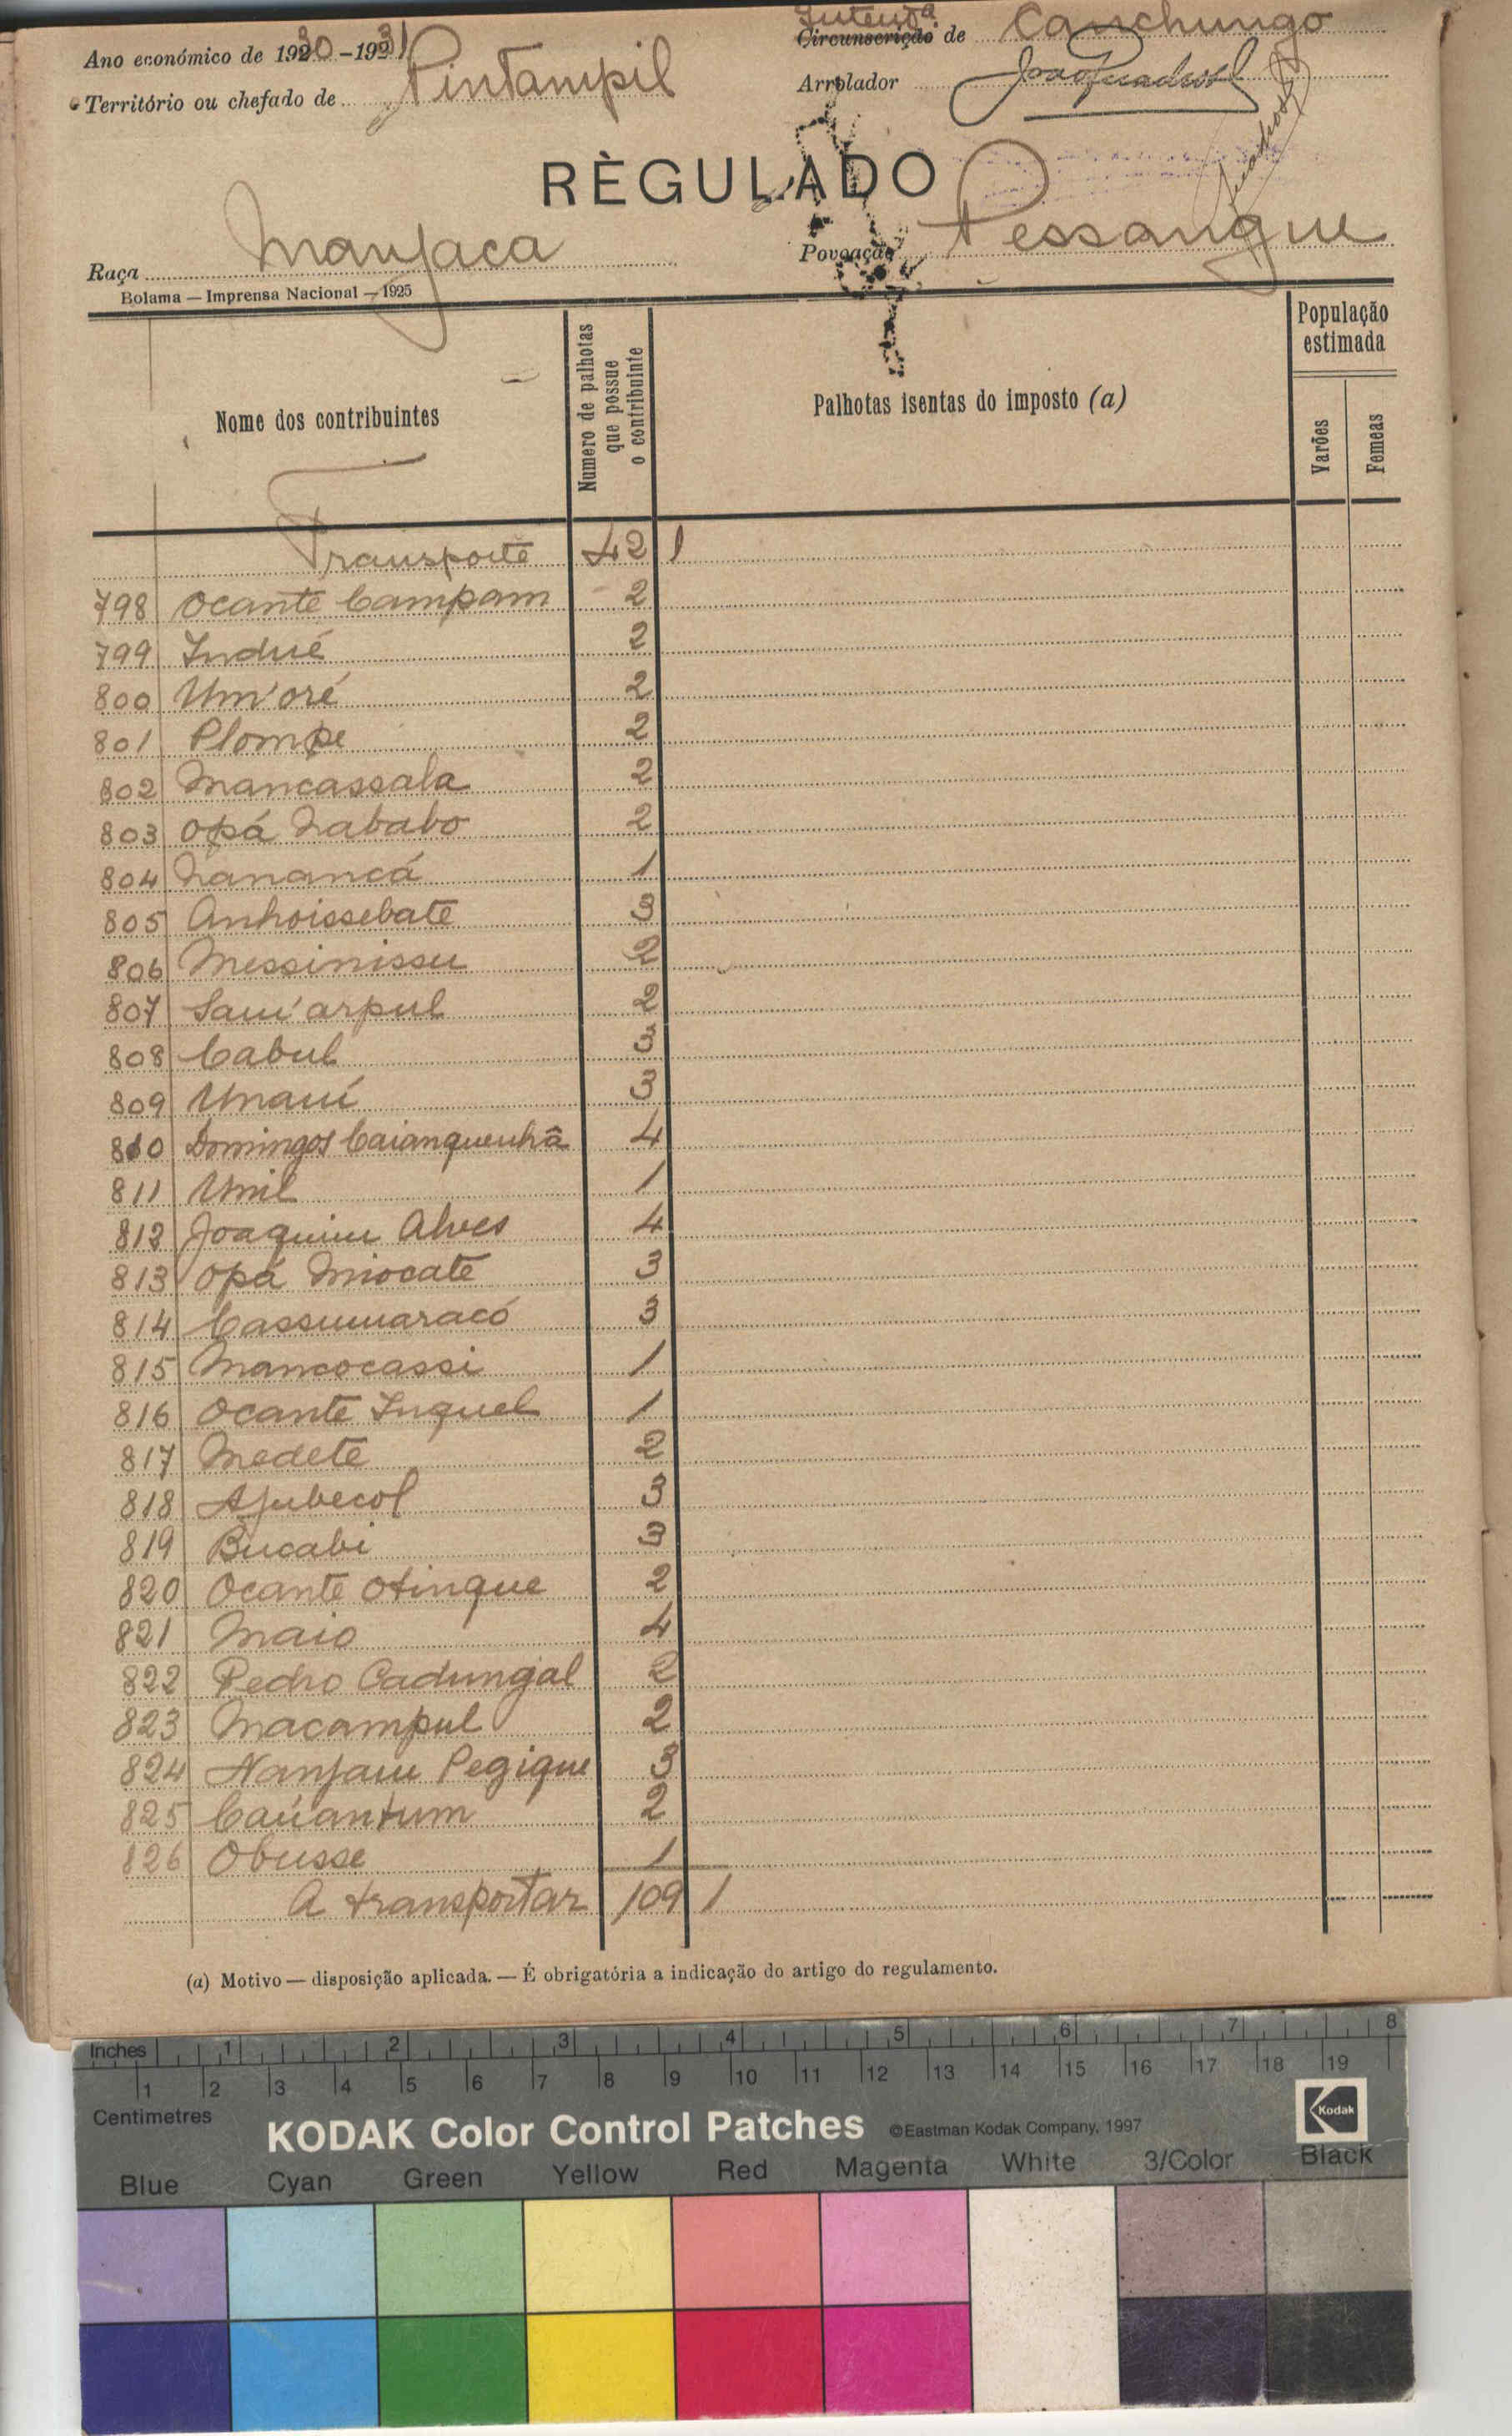 Ano económico de 1930-1931
Território ou chefado de Pintampil
Intend.ª
Circunscrição de Canchungo
Arrolador
RÈGULADO
Raça Manjaca
Povoação Pessangue
Bolama — Imprensa Nacional — 1925
Nome dos contribuintes
Numero de palhotas que possue o contribuinte
Palhotas isentas do imposto (a)
População estimada
Varões
Femeas
Transporte 42 1
798 Ocante Campam 2
799 Indué 2
800 Um'oré 2
801 Plompe 2
802 Mancassala 2
803 Opá Nababo 2
804 Nanancá 1
805 Anhoissebate 3
806 Messinissu 2
807 Sam'arpul 2
808 Cabul 3
809 Unauí 3
810 Domingos Caianquenhâ 4
811 Umil 1
812 Joaquim Alves 4
813 Opá Miocate 3
814 Cassumaracó 3
815 Mancocassi 1
816 Ocante Inquel 1
817 Medete 2
818 Ajubecol 3
819 Bucabi 3
820 Ocante Otinque 2
821 Maio 4
822 Pedro Cadungal 2
823 Macampul 2
824 Nanjau Pegique 3
825 Caúantum 2
826 Obusse 1
A transportar 109 1
(a) Motivo — disposição aplicada. — É obrigatória a indicação do artigo do regulamento.
Inches 1 2 3 4 5 6 7 8
1 2 3 4 5 6 7 8 9 10 11 12 13 14 15 16 17 18 19
Centimetres
KODAK Color Control Patches ©Eastman Kodak Company, 1997
Kodak
Blue Cyan Green Yellow Red Magenta White 3/Color Black